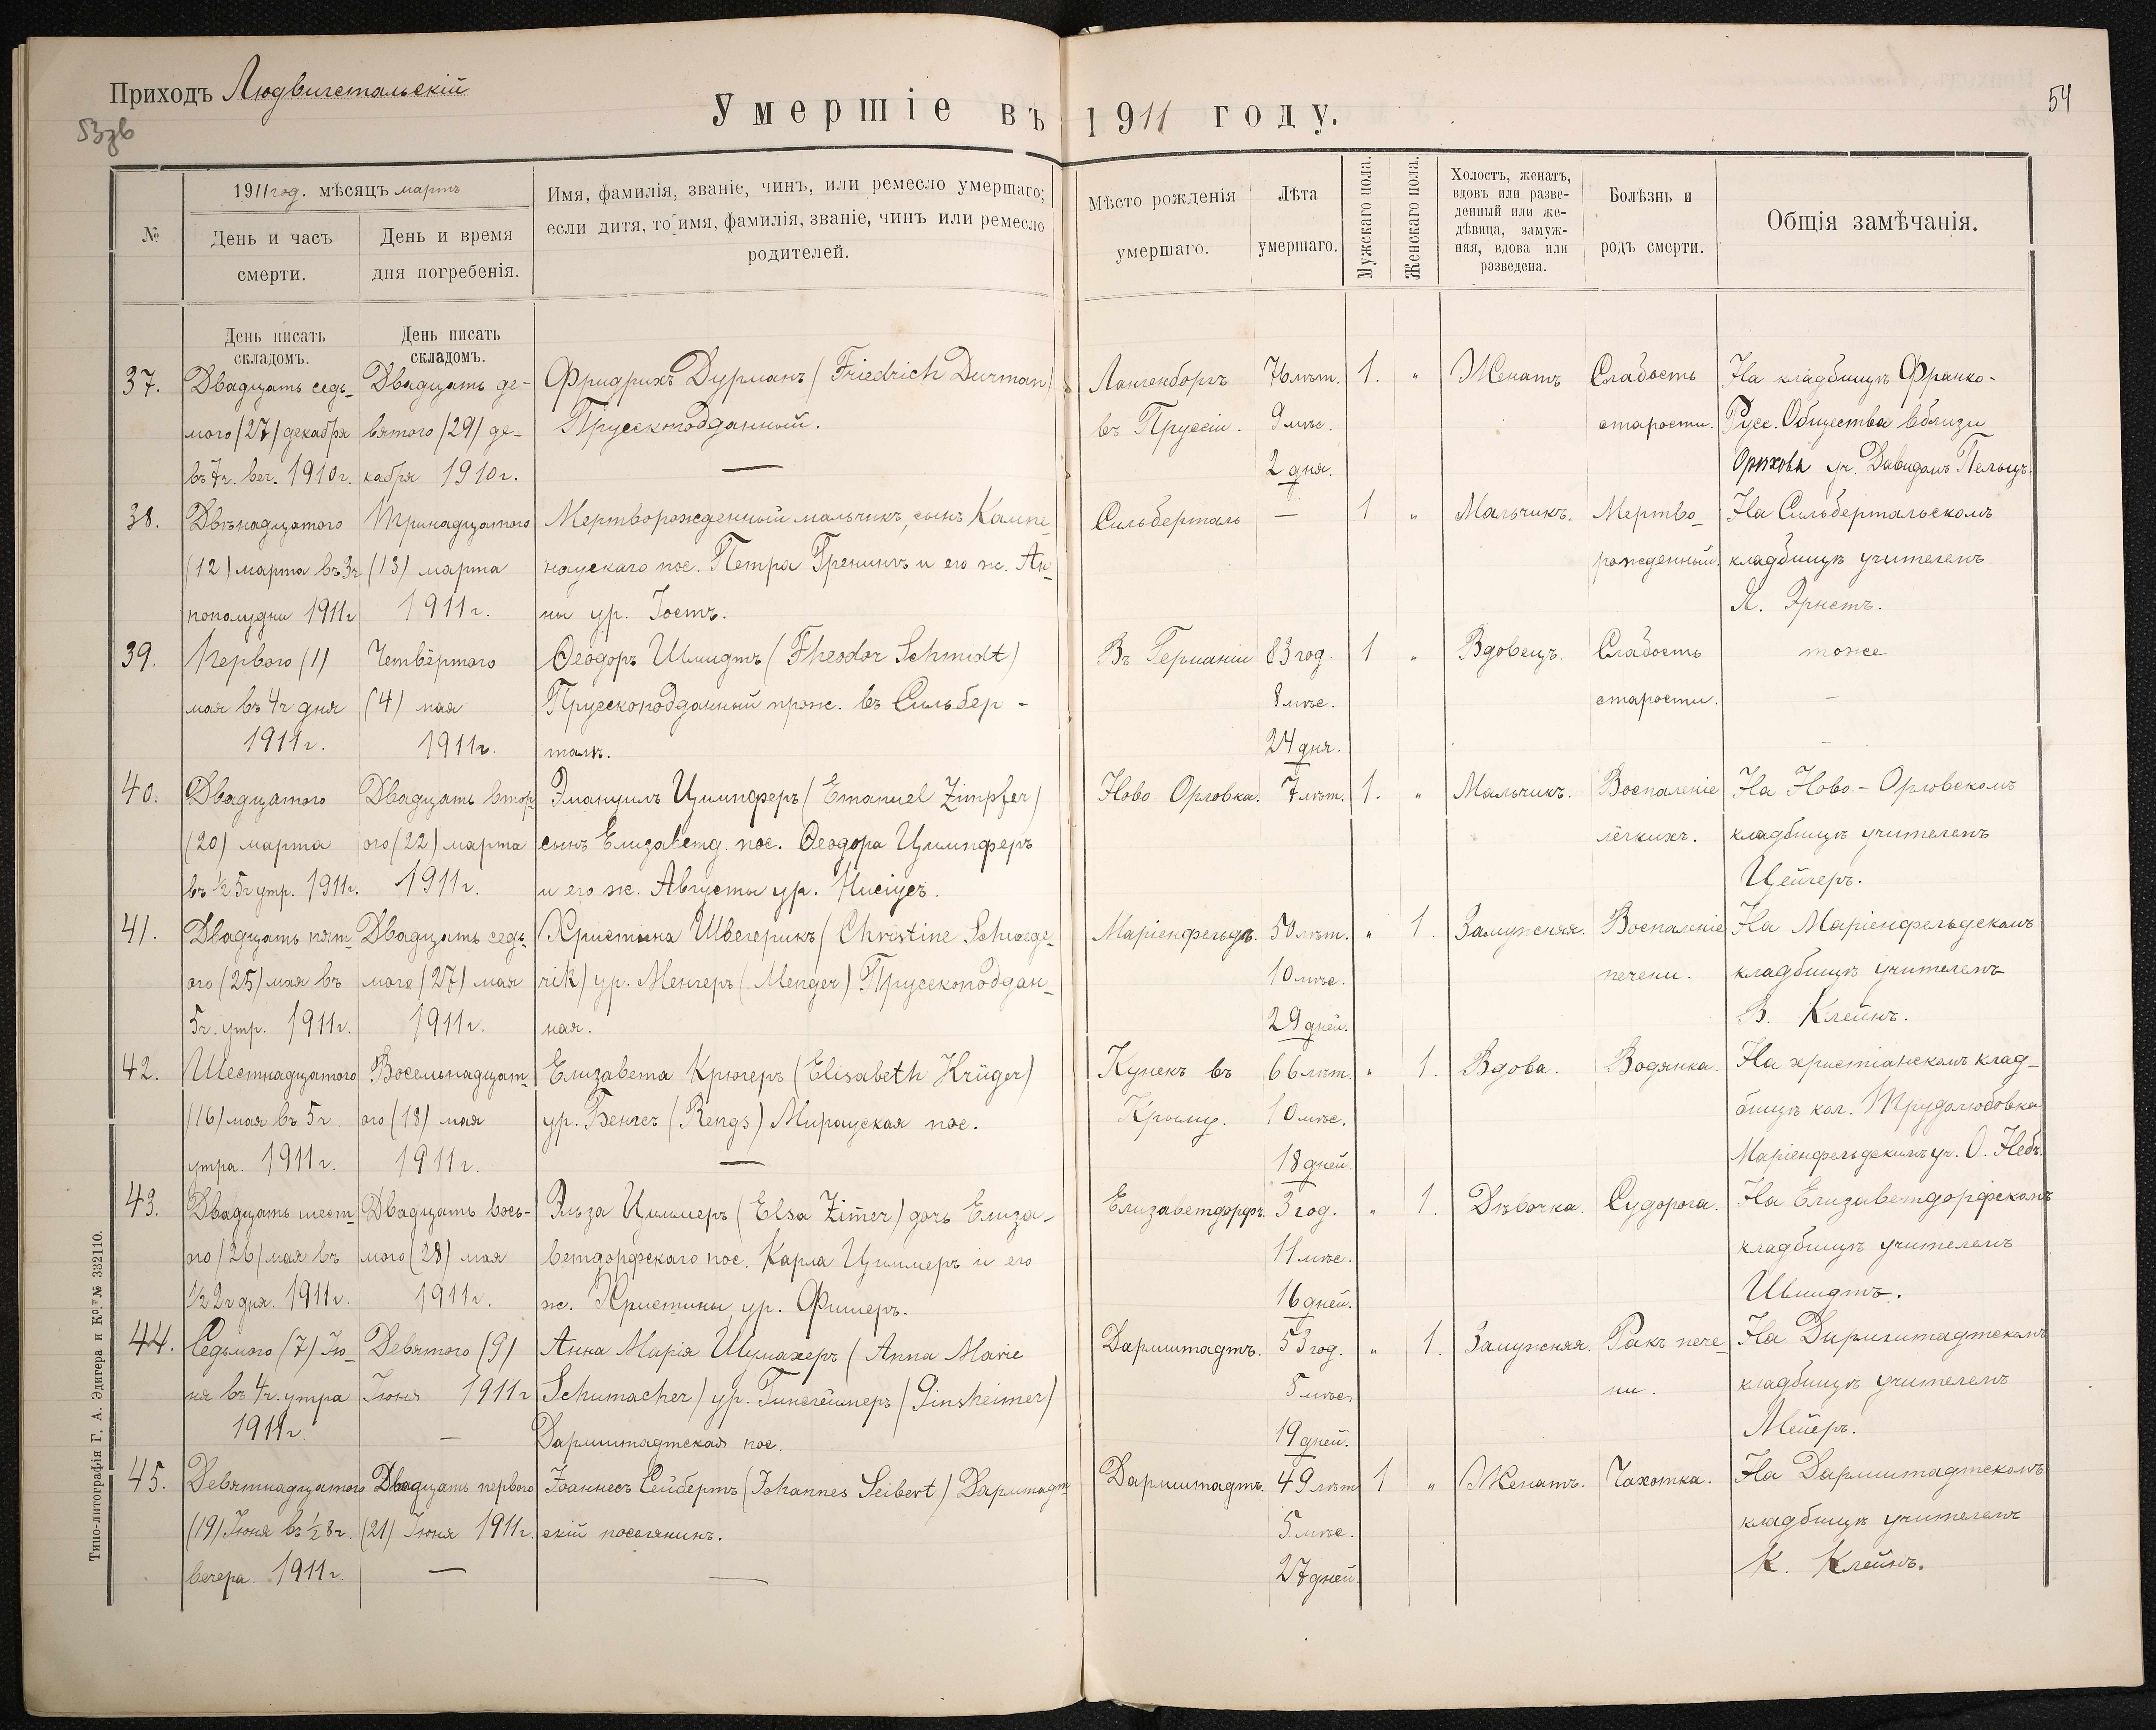 Приходъ Людвигстальскій
53зв
Умершіе въ 1911 году.
54
№
1911 год. мѣсяцъ мартъ
День и часъ
смерти.
День и время
дня погребенія.
Имя, фамилія, званіе, чинъ, или ремесло умершаго;
если дитя, то имя, фамилія, званіе, чинъ или ремесло
родителей.
Мѣсто рожденія
умершаго.
Лѣта
умершаго.
Мужскаго пола.
Женскаго пола.
Холостъ, женатъ,
вдовъ или разве-
денный или же-
дѣвица, замуж-
няя, вдова или
разведена.
Болѣзнь и
родъ смерти.
Общія замѣчанія.
День писать
складомъ.
День писать
складомъ.
37. Двадцать седь- Двадцать де- Фридрихъ Дурманъ (Friedrich Durman) Лангенборгъ 76 лѣт. 1. „ Женатъ Слабость На кладбищѣ Франко-
мого (27) декабря вятого (29) де- Прусскоподданный. въ Пруссіи. 9 мѣс. старости. Русс. Общества вблизи
въ 7ч. веч. 1910г. кабря 1910г. — 2 дня. Орѣхова уч. Давидомъ Пельцъ.
38. Двѣнадцатого Тринадцатого Мертворожденный мальчикъ, сынъ Кампе- Сильберталь — 1 „ Мальчикъ. Мертво- На Сильбертальскомъ
(12) марта въ 3ч (13) марта наускаго пос. Петра Гренингъ и его ж. Ан- рожденный. кладбищѣ учителемъ
пополудни 1911г 1911г. ны ур. Гостъ. Я. Эрнстъ.
39. Первого (1) Четвёртого Ѳеодоръ Шмидтъ (Fheodor Schmidt) Въ Германіи 83 год. 1 „ Вдовецъ. Слабость тоже
мая въ 4ч дня (4) мая Прусскоподданный прож. въ Сильбер- 8 мѣс. старости. —
1911г. 1911г. талѣ. 24 дня. —
40. Двадцатого Двадцать втор- Эмануилъ Цимпферъ (Emanuel Zimpfer) Ново-Орловка. 7 лѣт. 1. „ Мальчикъ. Воспаленіе На Ново-Орловскомъ
(20) марта ого (22) марта сынъ Елизаветд. пос. Ѳеодора Цимпферъ лёгкихъ. кладбищѣ учителемъ
въ ½ 5ч утр. 1911г. 1911г. и его ж. Августы ур. Нисіусъ. Цейгеръ.
41. Двадцать пят- Двадцать седь- Христина Швегерикъ (Christine Schwege- Маріенфельдъ. 50 лѣт. „ 1. Замужняя. Воспаленіе На Маріенфельдскомъ
ого (25) мая въ мого (27) мая rik) ур. Менгеръ (Menger) Прусскоподдан- 10 мѣс. печени. кладбищѣ учителемъ
5ч. утр. 1911г. 1911г. ная. 29 дней. В. Клейнъ.
42. Шестнадцатого Восемьнадцат- Елизавета Крюгеръ (Elisabeth Krüger) Кунекъ въ 66 лѣт. „ 1. Вдова. Водянка. На христіанскомъ клад-
(16) мая въ 5ч. ого (18) мая ур. Бенгсъ (Rengs) Мирауская пос. Крыму. 10 мѣс. бищѣ кол. Трудолюбовка
утра. 1911г. 1911г. — 18 дней. Маріенфельдскимъ уч. О. Небъ.
43. Двадцать шест- Двадцать вось- Эльза Циммеръ (Elsa Zim̄er) дочь Елиза- Елизаветдорфъ. 3 год. „ 1. Дѣвочка. Судорога. На Елизаветдорфскомъ
ого (26) мая въ мого (28) мая ветдорфскаго пос. Карла Циммеръ и его 11 мѣс. кладбищѣ учителемъ
½ 2ч дня. 1911г. 1911г. ж. Христины ур. Фишеръ. 16 дней. Шмидтъ.
44. Седьмого (7) Ію- Девятого (9) Анна Марія Шумахеръ (Anna Marie Дармштадтъ. 53 год. „ 1. Замужняя. Ракъ пече- На Дармштадтскомъ
ня въ 4ч. утра Іюня 1911г Schumacher) ур. Гинсгеймеръ (Ginsheimer) 5 мѣс. ни. кладбищѣ учителемъ
1911г. — Дармштадтская пос. 19 дней. Мейеръ.
45. Девятнадцатого Двадцать первого Іоаннесъ Сейбертъ (Johannes Seibert) Дармштадт- Дармштадтъ. 49 лѣт. 1 „ Женатъ. Чахотка. На Дармштадтскомъ
(19) Іюня въ ½ 8ч. (21) Іюня 1911г. скій поселянинъ. 5 мѣс. кладбищѣ учителемъ
вечера. 1911г. — — 27 дней. К. Клейнъ.
Типо-литографія Г. А. Эдигера и Кº. № 332110.